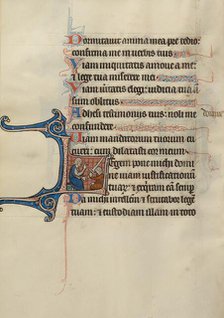 Dormitavit anima mea pre tedio
confirma me in verbis tuis
Viam iniquitatis amove a me:
et lege tua miserere mei
Viam veritatis elegi: iudicia tua
sum oblitus
Adhesi testimoniis tuis
confundere
Viam mandatorum tuorum cu
curri: cum dilatasti cor meum
Legem pone michi domi
ne viam iustificationum
tuarum: et exquiram eam semp
Da michi intellectum et scrutabor legem
tuam: et custodiam illam in toto